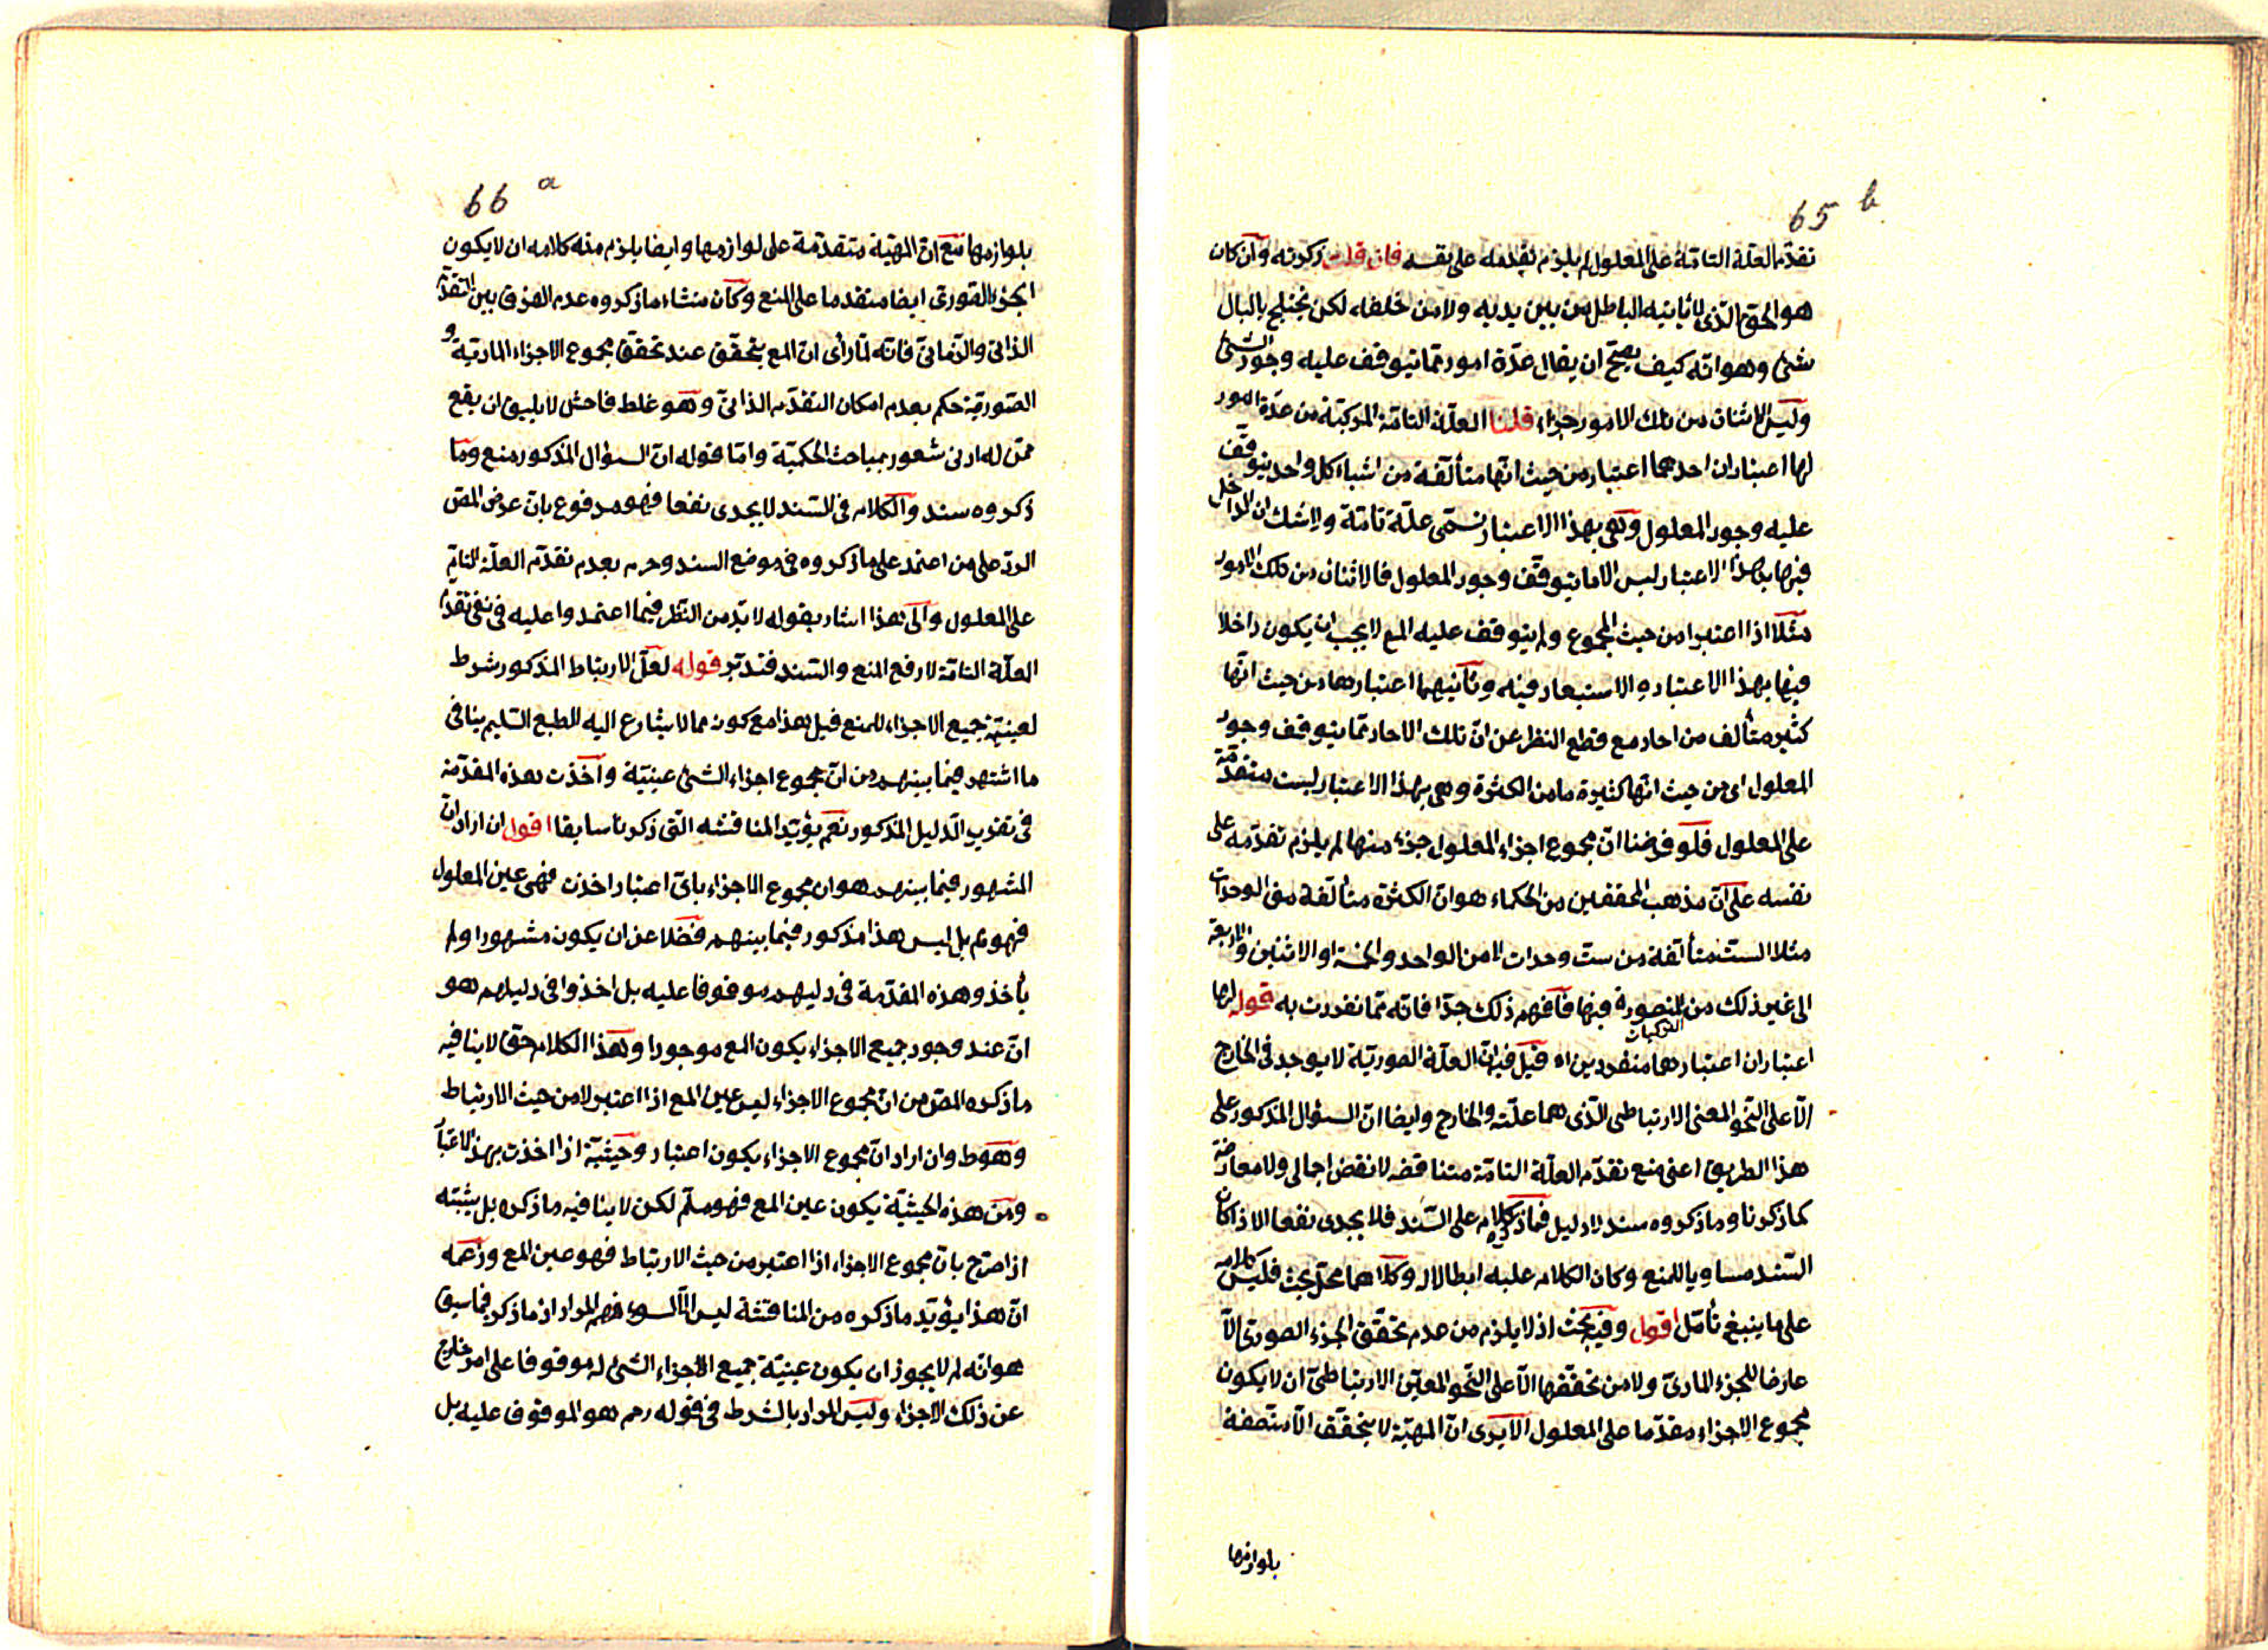 65 b
تقدّم العلّة التامّة على المعلول لم يلزم تقدمه على نفسه فان قلت ذكرته وان كان
هو الحق الّذى لا يأتيه الباطل من بين يديه ولا من خلفه لكن يختلج بالبال
شئ وهو انّه كيف يصحّ ان يقال عدّة امور ممّا يتوقف عليه وجود الشئ
وليس الاثنان من تلك الامور جزاء قلنا العلّة التامّة المركبّة من عدّة امور
لها اعتباران احدهما اعتبار من حيث انّها متألّفة من اشياء كل واحد يتوقّف
عليه وجود المعلول وهى بهذا الاعتبار تسمّى علّة تامّة ولا شك ان الداخل
فيها بهذا الاعتبار ليس الا ما يتوقف وجود المعلول فالاثنان من تلك الامور
مثلا اذا اعتبرا من حيث المجموع ولم يتوقف عليه المع لا يجب ان يكون داخلا
فيها بهذا الاعتبار ولا استبعاد فيه وثانيهما اعتبارها من حيث انّها
كثير متألف من احاد مع قطع النظر عن انّ تلك الاحاد ممّا يتوقف وجود
المعلول اى من حيث انّها كثيرة ما من الكثرة وهى بهذا الاعتبار ليست متقدّمة
على المعلول فلو فرضنا انّ مجموع اجزاء المعلول جزء منها لم يلزم تقدّمه على
نفسه على انّ مذهب المحققين من الحكماء هو ان الكثرة متألّفة من الوحدات
مثلا الستّة متألّفة من ستّ وحدات لا من الواحد والخمسة او الاثنين والاربعة
الى غير ذلك من التركيبات المتصورة فيها فافهم ذلك جدّا فانّه ممّا تفردت به قوله لها
اعتباران اعتبارهما منفردين اه قيل فيه انّ العلّة الصوريّة لا يوجد فى الخارج
الّا على النحو المعنى الارتباطى الّذى هما علّته والخارج وايضا انّ السؤال المذكور على
هذا الطريق اعنى منع تقدّم العلّة التامّة متناقضه لا نقض اجمالى ولا معارضة
كما ذكرنا وما ذكروه سند لا دليل فما ذكره كلام على السّند فلا يجدى نفعا الا اذا كان
السّند مساويا للمنع وكان الكلام عليه ابطالا له وكلاهما محلّ بحث فليس كلامه
على ما ينبغى تأمّل اقول وفيه بحث اذ لا يلزم من عدم تحقّق الجزء الصورى الّا
عارضا للجزء المادىّ ولا من تحقّقها الّا على النّحو المعيّن الارتباطىّ ان لا يكون
مجموع الاجزاء مقدّما على المعلول الا يرى انّ المهيّة لا يتحقّق الّا متّصفة
بلوازمها
66 a
بلوازمها مع انّ المهيّة متقدّمة على لوازمها وايضا يلزم منه كلامه ان لا يكون
الجزء الصورى ايضا متقدما على المنع وكان منشاء ما ذكروه عدم الفرق بين التقدّم
الذاتىّ والزّمانىّ فانّه لمّا رأى ان المع يتحقّق عند تحقّق مجموع الاجزاء الماديّة و
الصّوريّة حكم بعدم امكان التقدّم الذاتىّ وهو غلط فاحش لا يليق ان يقع
ممّن له ادنى شعور بمباحث الحكميّة وامّا قوله انّ السؤال المذكور منع وما
ذكروه سند والكلام فى السّند لا يجدى نفعا فهو مدفوع بانّ غرض المص
الردّ على من اعتمد على ما ذكروه فى موضع السند وجزم بعدم تقدّم العلّة التامّة
على المعلول والى هذا اشار بقوله لا بدّ من النّظر فيما اعتمدوا عليه فى نفى تقدّم
العلّة التامّة لا رفع المنع والسّند فتدبّر قوله لعلّ الارتباط المذكور شرط
لعينيّة جميع الاجزاء للمنع قيل هذا مع كونه مما لا يشارع اليه الطبع السّليم ينافى
ما اشتهر فيما بينهم من انّ مجموع اجزاء الشئ عينيّة واخذت هذه المقدّمة
فى تقرير الدّليل المذكور نعم يؤيّد المناقشه الّتى ذكرنا سابقا اقول ان اراد انّ
المشهور فيما بينهم هو ان مجموع الاجزاء باىّ اعتبار اخذت فهى عين المعلول
فهو ثم بل ليس هذا مذكور فيما بينهم فضلا عن ان يكون مشهورا ولم
يأخذوا هذه المقدّمة فى دليلهم موقوفا عليه بل اخذوا فى دليلهم هو
انّ عند وجود جميع الاجزاء يكون المع موجودا وهذا الكلام حقّ لا ينافيه
ما ذكره المص من انّ مجموع الاجزاء ليس عين المع اذا اعتبر لا من حيث الارتباط
وهو ط وان اراد انّ مجموع الاجزاء يكون اعتبار وحيثيّة اذا اخذت بهذا الاعتبار
ومن هذه الحيثيّة يكون عين المع فهو مسلّم لكن لا ينافيه ما ذكره بل يثبته
اذا صرّح بانّ مجموع الاجزاء اذا اعتبر من حيث الارتباط فهو عين المع وزعمه
انّ هذا يؤيّد ما ذكره من المناقشة ليس الّا لسوء فهم المراد اذ ما ذكر فيما سبق
هو انّه لم لا يجوز ان يكون عينيّة جميع الاجزاء الشئ له موقوفا على امر خارج
عن ذلك الاجزاء وليس المراد بالشرط فى قوله رحم هو الموقوف عليه بل